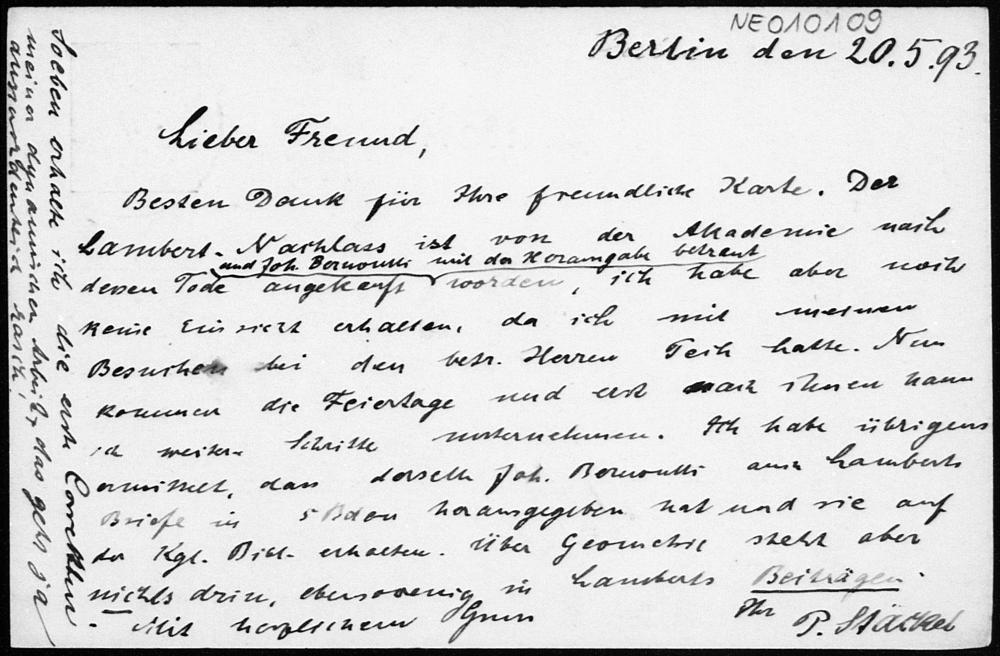 NE010109
Berlin den 20.5.93.
Lieber Freund,
Besten Dank für Ihre freundliche Karte. Der
Lambert-Nachlass ist von der Akademie nach
und Joh. Bernoulli mit der Herausgabe betraut
dessen Tode angekauft worden, ich habe aber noch
keine Einsicht erhalten, da ich mit meinen
Besuchen bei den betr. Herren Pech hatte. Nun
kommen die Feiertage und erst nach ihnen kann
ich weitere Schritte unternehmen. Ich habe übrigens
ermittelt, dass derselbe Joh. Bernoulli auch Lamberts
Briefe in 5 Bden herausgegeben hat und sie auf
der Kgl. Bibl. erhalten. Über Geometrie steht aber
nichts drin, ebensowenig in Lamberts Beiträgen.
Mit herzlichem Gruss
Ihr P. Stäckel
Soeben erhalte ich die erste Correktur
meiner dynamischen Arbeit, das geht ja
ausserordentlich rasch!